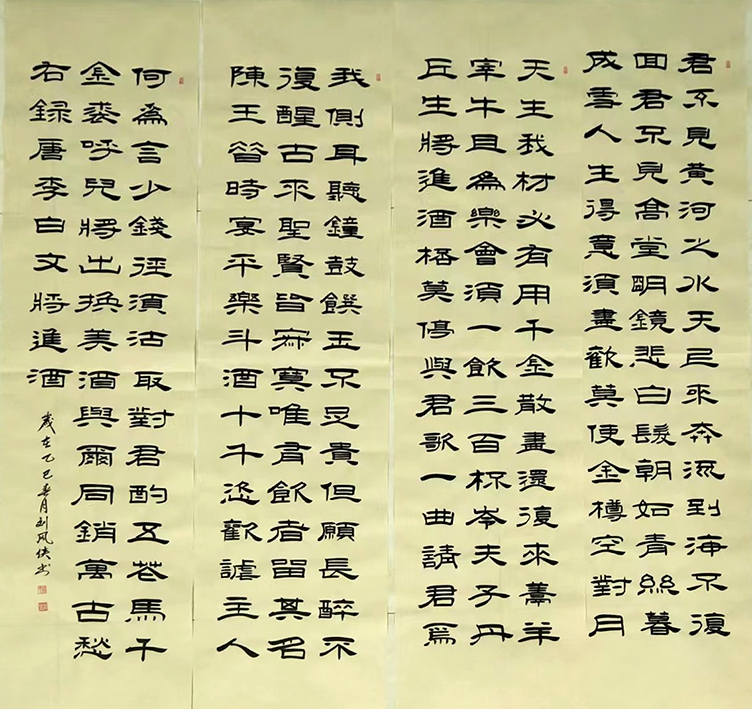 君不見黃河之水天上來奔流到海不復
回君不見高堂明鏡悲白髮朝如青絲暮
成雪人生得意須盡歡莫使金樽空對月
天生我材必有用千金散盡還復來羊
宰牛且為樂會須一飲三百杯岑夫子丹
丘生將進酒桮莫停與君歌一曲請君為
我側耳聽鐘鼓饌玉不足貴但願長醉不
復醒古來聖賢皆寂寞唯有飲者留其名
陳王昔時宴平樂斗酒十千恣歡謔主人
何為言少錢徑須沽取對君酌五花馬千
金裘呼兒將出換美酒與爾同銷萬古愁
右錄唐李白文將進酒
歲在乙巳春月刘风侠书